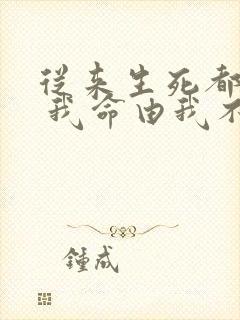 从来生死都
我命由我不
鍾成